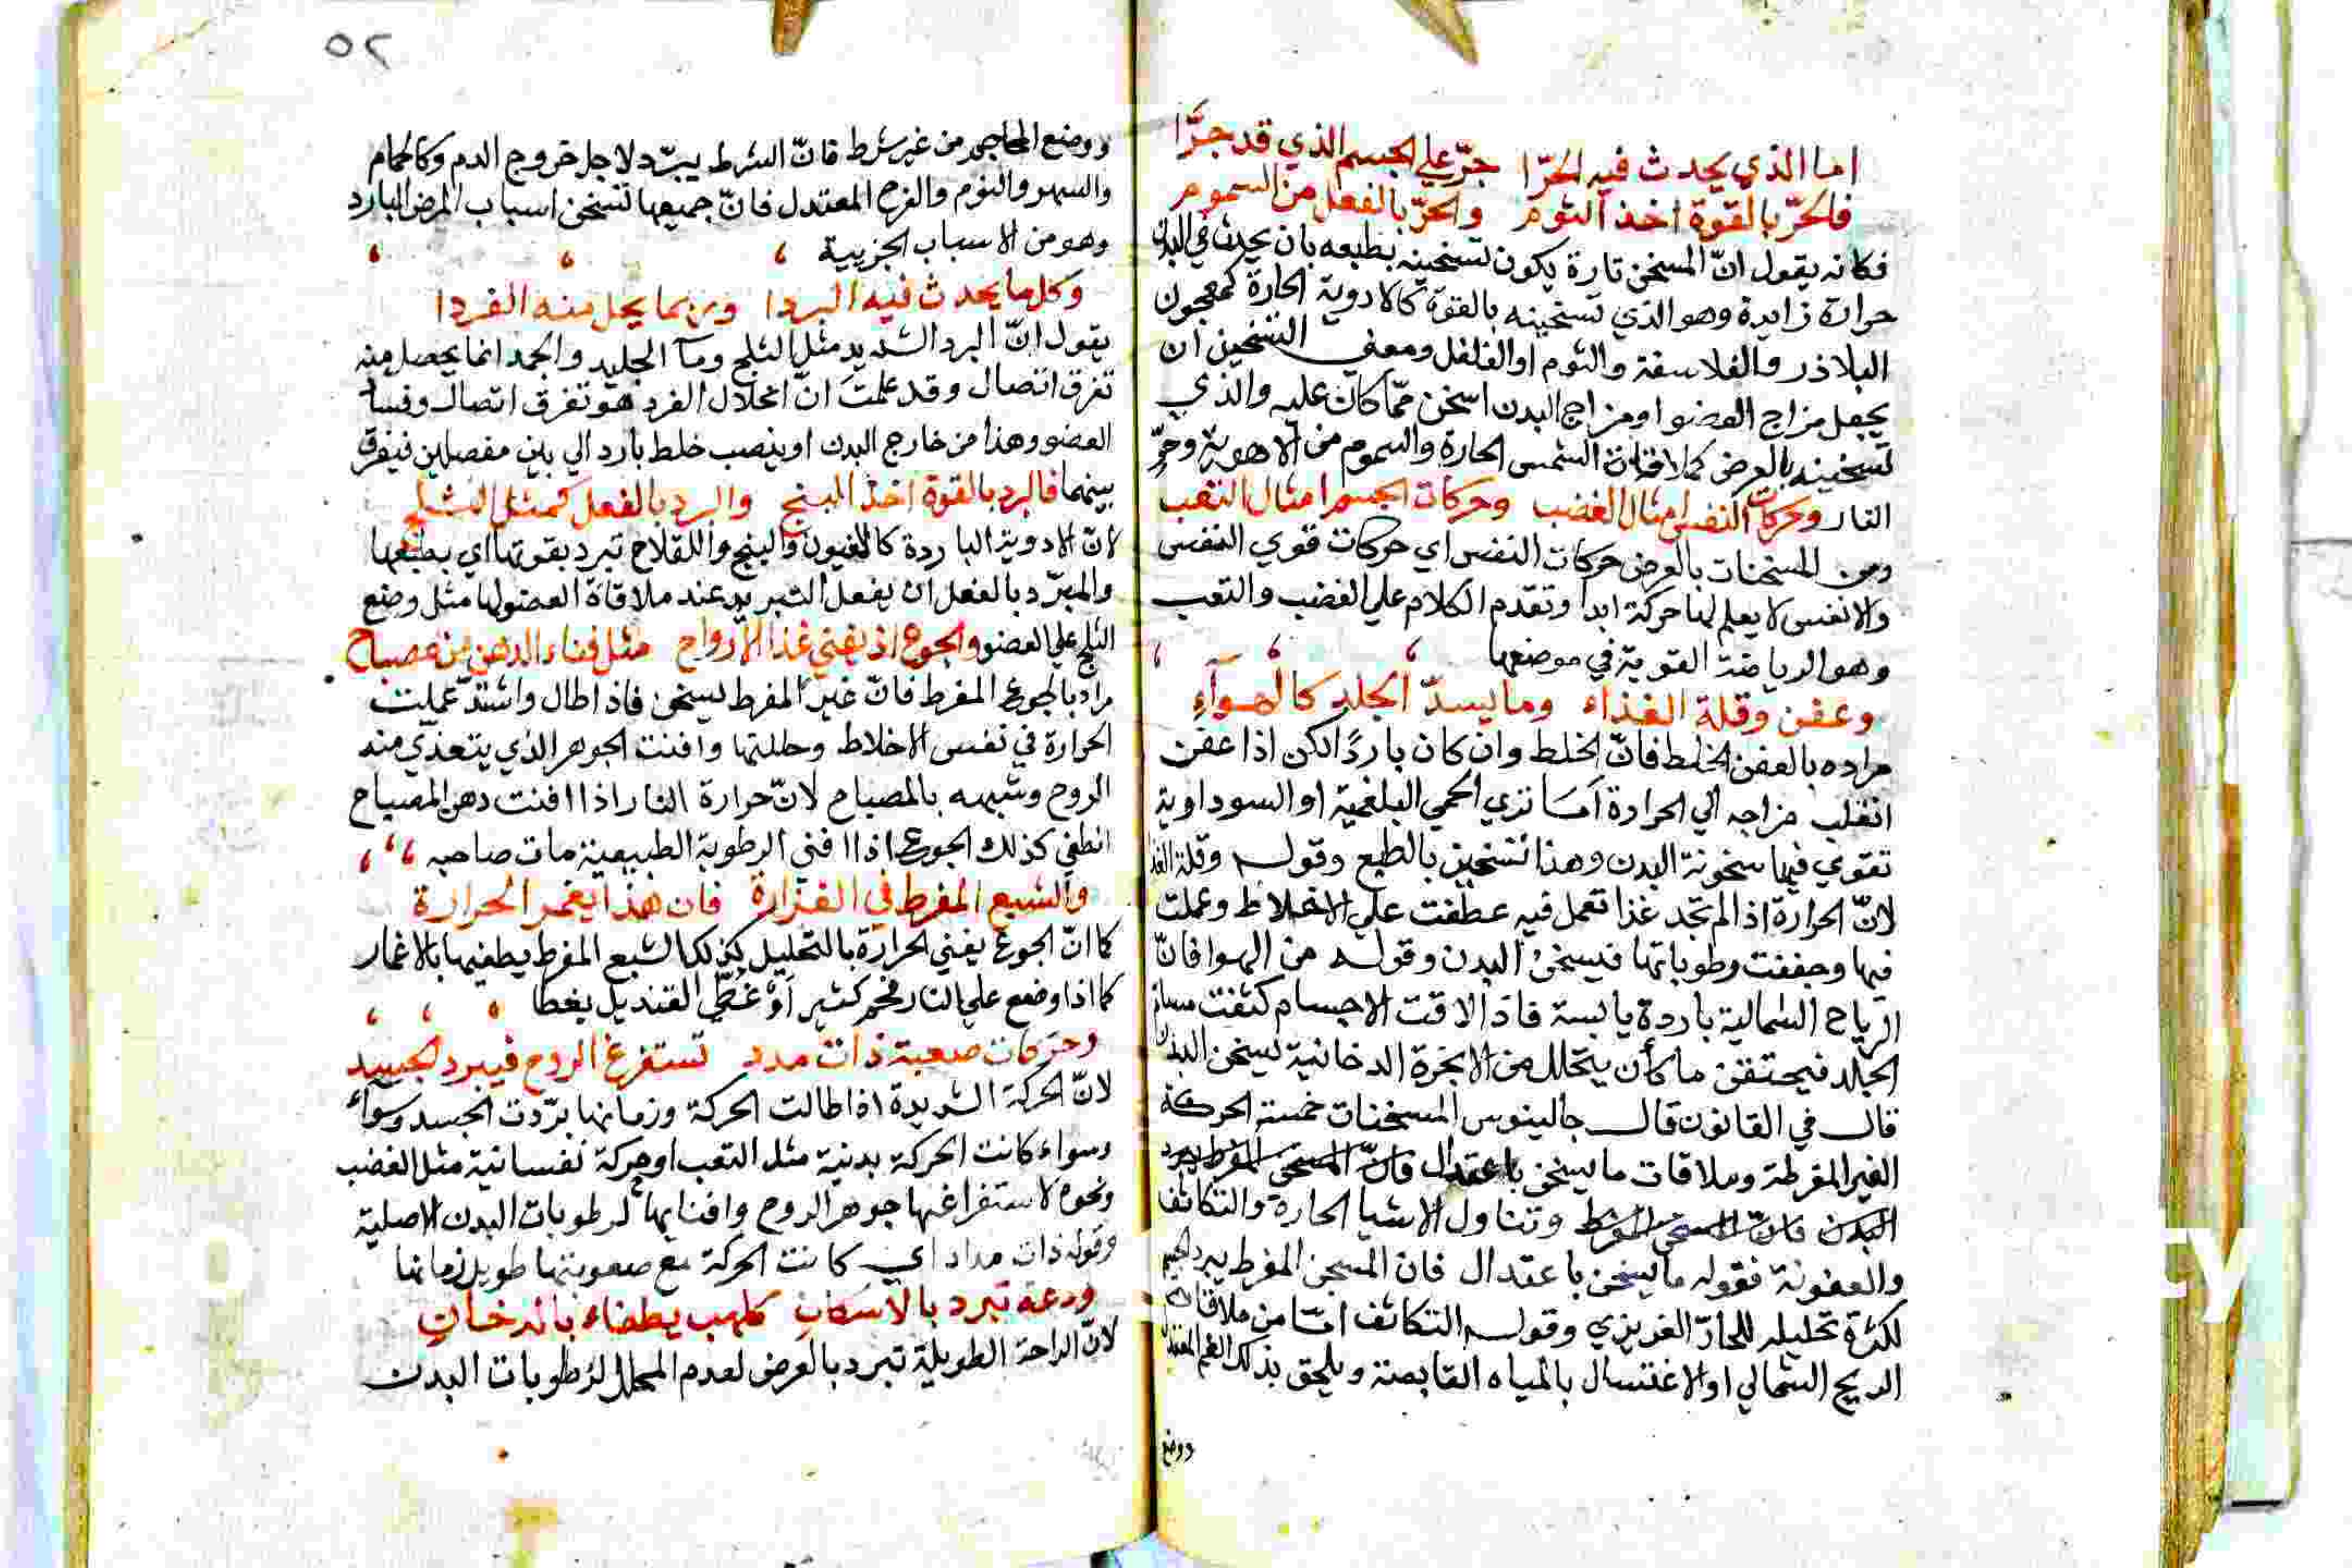 اما الذي يحدث فيه الحرّا جرّ علي الجسم الذي قد جرّا
فالحرّ بالقوة اخذ الثوم والحرّ بالفعل من السموم
فكانه يقول انّ المسخن تارة يكون تسخينه بطبعه بان يحدث في البدن
حرارة زايدة وهو الذي تسخينه بالقوة كالادوية الحارة كمعجون
البلاذر والفلاسفة والثوم او الفلفل ومعني التسخين ان
يجعل مزاج العضو او مزاج البدن اسخن ممّا كان عليه والذي
تسخينه بالعرض كملاقاة الشمس الحارة والسموم من الاهوية وحرّ
النار وحركات النفس امثال الغضب وحركات الجسم امثال التعب
ومن المسخنات بالعرض حركات النفس اي حركات قوي النفس
والانفس لا يعلم لها حركة ابدا وتقدم الكلام علي الغضب والتعب
وهو الرياضة القوية في موضعها
وعفن وقلة الغذاء وما يسدّ الجلد كالهوآء
مراده بالعفن الخلط فانّ الخلط وان كان باردًا لكن اذا عفن
انقلب مزاجه الي الحرارة اما تري الحمي البلغمية او السوداوية
تقوي فيها سخونة البدن وهذا تسخين بالطبع وقوله وقلة الغذا
لانّ الحرارة اذا لم تجد غذا تعمل فيه عطفت علي الاخلاط وعملت
فيها وجففت رطوباتها فيسخن البدن وقوله من الهوا فانّ
الرياح الشمالية باردة يابسة فاذا لاقت الاجسام كثفت مسام
الجلد فيحتقن ما كان يتحلل من الابخرة الدخانية ليسخن البدن
قال في القانون قال جالينوس المسخنات خمسة الحركة
الغير المفرطة وملاقات ما يسخن باعتدال فانّ المسخن المفرط يبرد
البدن فانّ المسخن المفرط وتناول الاشيا الحارة والتكاثف
والعفونة فقوله ما يسخن باعتدال فان المسخن المفرط يبرد الجسم
لكثرة تحليله للحارّ الغريزي وقوله التكاثف امّا من ملاقاة
الريح الشمالي او الاغتسال بالمياه القابضة ويلحق بذلك
ووضع
٥٢
ووضع المحاجم من غير شرط فانّ الشرط يبرّد لاجل خروج الدم وكالحمام
والسهر والنوم والفرح المعتدل فانّ جميعها تسخن اسباب المرض البارد
وهو من الاسباب الجزيية
وكل ما يحدث فيه البردا وربما يحل منه الفردا
يقول انّ البرد الشديد مثل الثلج ومآ الجليد والجمد انما يحصل منه
تفرق اتصال وقد علمت انّ انحلال الفرد هو تفرق اتصال وفساد
العضو وهذا من خارج البدن او ينصب خلط بارد الي بين مفصلين فيفرق
بينهما فالبرد بالقوة اخذ البنج والبرد بالفعل كمثل الثلج
لانّ الادوية الباردة كالافيون والبنج واللفاح تبرد بقوتها اي بطبعها
والمبرّد بالفعل ان يفعل التبريد عند ملاقاة العضو لها مثل وضع
الثلج علي العضو والجوع اذ يفني غذا الارواح مثل فناء الدهن من مصباح
مراد بالجوع المفرط فانّ غير المفرط يسخن فاذا طال واشتدّ عملت
الحرارة في نفس الاخلاط وحللتها وافنت الجوهر الذي يتغذي منه
الروح وشبهه بالمصباح لانّ حرارة النار اذا افنت دهن المصباح
انطفي كذلك الجوع اذا افني الرطوبة الطبيعية مات صاحبه
والشبع المفرط في الغزارة فان هذا يغمر الحرارة
كما انّ الجوع يفني الحرارة بالتحليل كذلك الشبع المفرط يطفيها بالاغمار
كما اذا وضع علي النار فحم كثير اوْ غُطّي القنديل بغطا
وحركات صعبة ذات مدد تستفرغ الروح فيبرد الجسد
لانّ الحركة الشديدة اذا طالت الحركة وزمانها برّدت الجسد وسوآء
وسواء كانت الحركة بدنية مثل التعب او حركة نفسانية مثل الغضب
ونحوه لاستفراغها جوهر الروح وافنايها لرطوبات البدن الاصلية
وقوله ذات مداد اي كانت الحركة مع صعوبتها طويل زمانها
ودعة تبرد بالاسكان كلهب يطفاء بالدخان
لانّ الراحة الطويلة تبرد بالعرض لعدم المحلل لرطوبات البدن